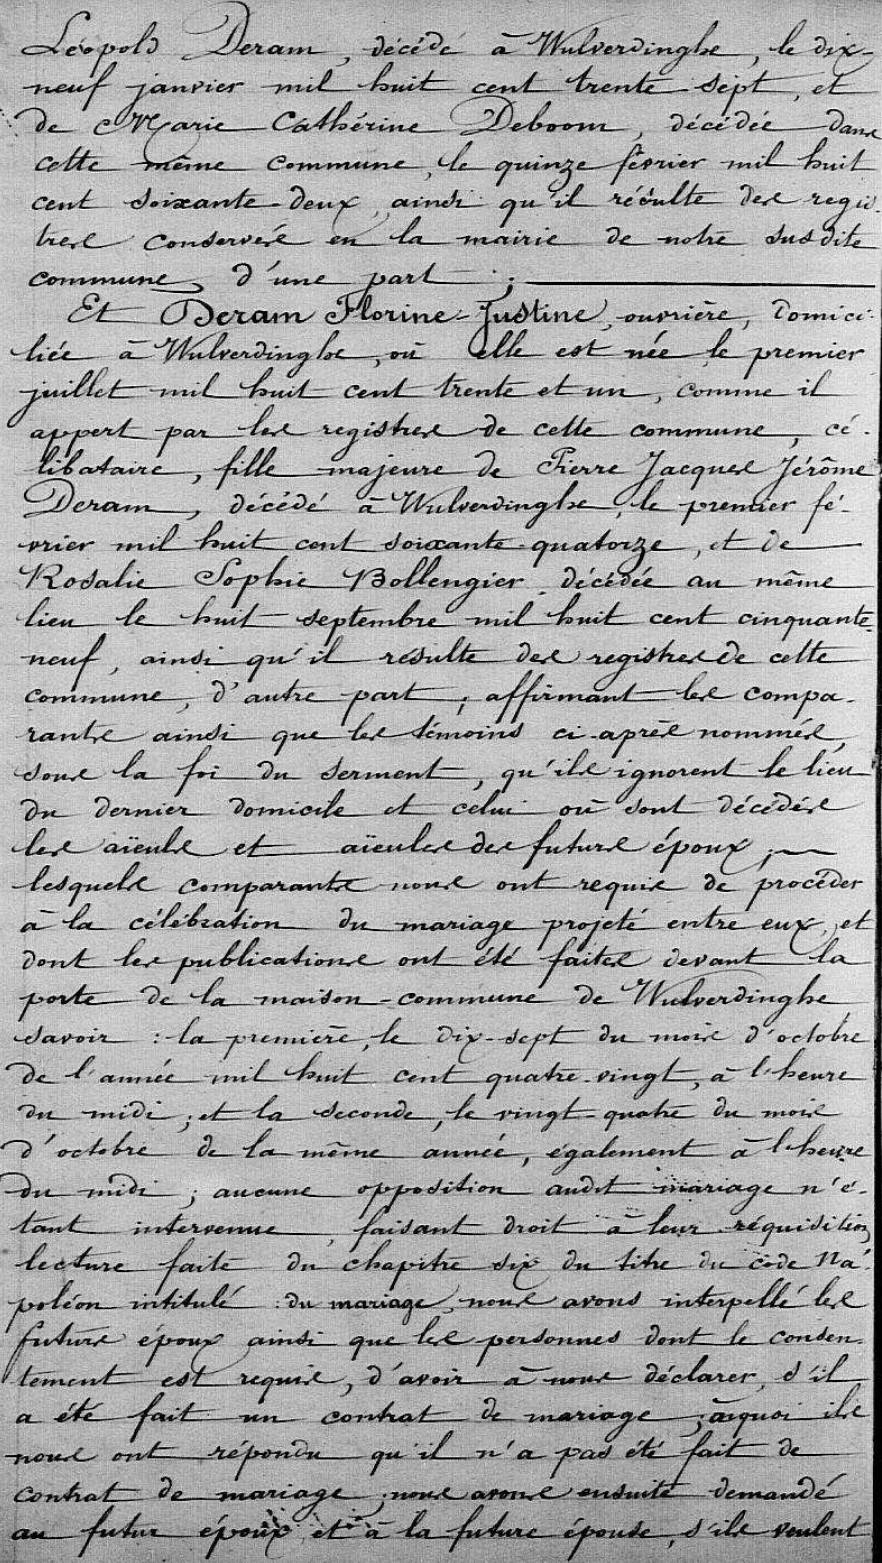 Léopold Deram, décédé à Wulverdinghe, le dix-
neuf janvier mil huit cent trente-sept, et
de Marie Cathérine Deboom, décédée dans
cette même commune, le quinze février mil huit
cent soixante-deux, ainsi qu'il résulte des regis-
tres conservés en la mairie de notre susdite
commune, d'une part ;
Et Deram Florine-Justine, ouvrière, domici-
liée à Wulverdinghe, où elle est née le premier
juillet mil huit cent trente et un, comme il
appert par les registres de cette commune, cé-
libataire, fille majeure de Pierre Jacques Jérôme
Deram, décédé à Wulverdinghe, le premier fé-
vrier mil huit cent soixante-quatorze, et de
Rosalie Sophie Bollengier, décédée au même
lieu le huit septembre mil huit cent cinquante-
neuf, ainsi qu'il résulte des registres de cette
commune, d'autre part ; affirmant les compa-
rants ainsi que les témoins ci-après nommés,
sous la foi du serment, qu'ils ignorent le lieu
du dernier domicile et celui où sont décédés
les aïeuls et aïeules des futurs époux ;
lesquels comparants nous ont requis de procéder
à la célébration du mariage projeté entre eux, et
dont les publications ont été faites devant la
porte de la maison-commune de Wulverdinghe
savoir : la première, le dix-sept du mois d'octobre
de l'année mil huit cent quatre-vingt, à l'heure
du midi ; et la seconde, le vingt-quatre du mois
d'octobre de la même année, également à l'heure
du midi ; aucune opposition audit mariage n'é-
tant intervenue, faisant droit à leur réquisition,
lecture faite du chapitre six du titre du code Na-
poléon intitulé : du mariage, nous avons interpellé les
futurs époux ainsi que les personnes dont le consen-
tement est requis, d'avoir à nous déclarer, s'il
a été fait un contrat de mariage ; à quoi ils
nous ont répondu qu'il n'a pas été fait de
contrat de mariage ; nous avons ensuite demandé
au futur époux et à la future épouse, s'ils veulent